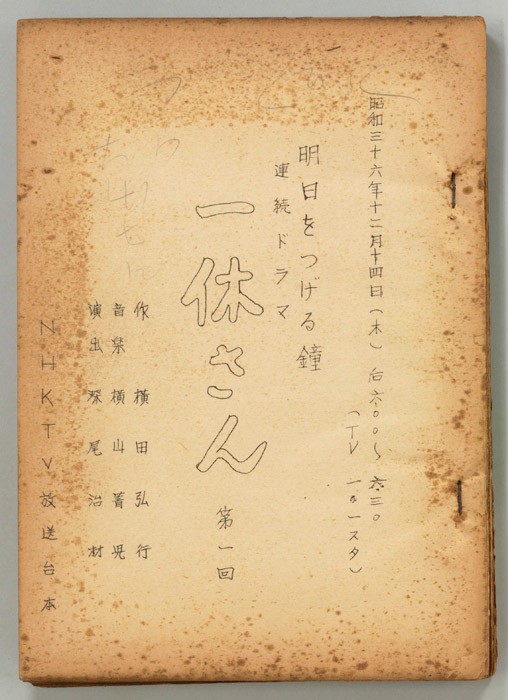 昭和三十六年十二月十四日(木) 后六.〇〇〜六.三〇
(TV 一〇一スタ)
明日をつげる鐘
連続ドラマ
一休さん 第一回
作 横田弘行
音楽 横山菁児
演出 深尾治材
NHKTV放送台本